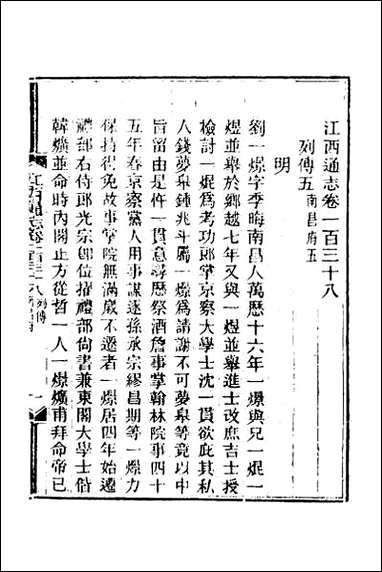 江西通志卷一百三十八
列傳五 南昌府五
明
劉一燝字季晦南昌人萬歷十六年一燝與兄一焜一
煜並舉於鄉越七年又與一煜並舉進士改庶吉士授
檢討一焜爲考功郎掌京察大學士沈一貫欲庇其私
人錢夢臯鍾兆斗屬一燝爲請謝不可夢臯等竟以中
旨留由是忤一貫意尋歷祭酒詹事掌翰林院事四十
五年春京察黨人用事謀逐孫承宗繆昌期等一燝力
保持得免故事掌院無滿歲不遷者一燝居四年始遷
禮部右侍郎光宗卽位擢禮部尚書兼東閣大學士偕
韓爌並命時內閣止方從哲一人一燝爌甫拜命帝已
江西通志卷一百三十八 列傳 一